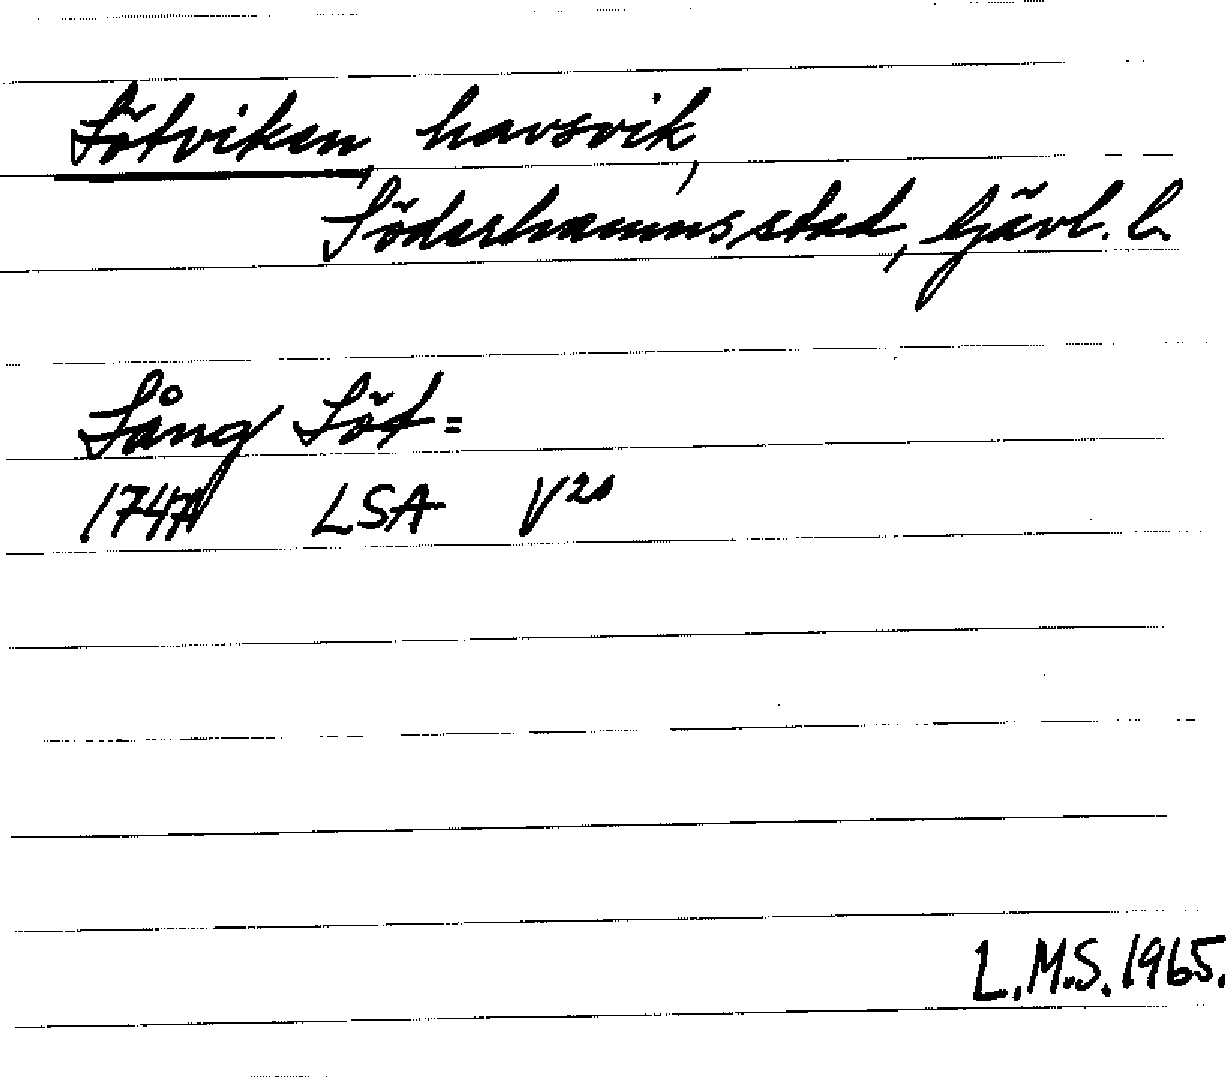 Sötviken, havsvik,
Söderhamns stad, Gävl. l.
Sång Söt=
1747 LSA V20
L.M.S. 1965.